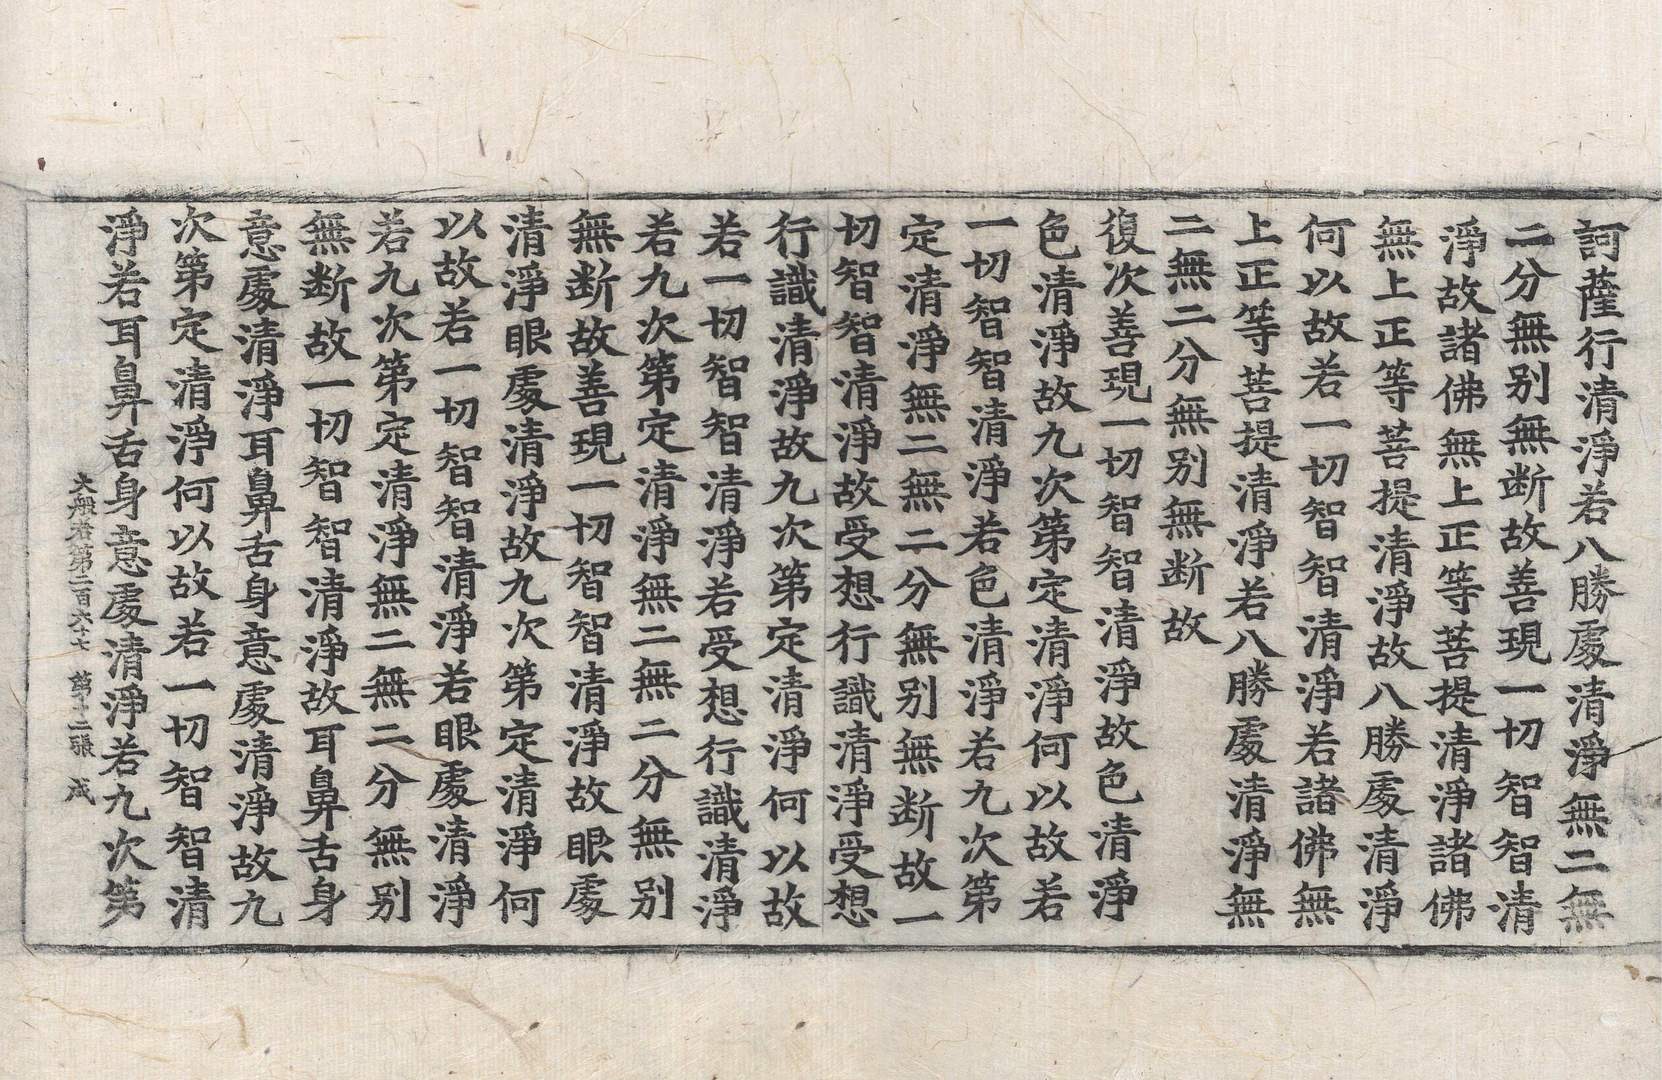 訶薩行清淨若八勝處清淨無二無
二分無别無断故善現一切智智清
淨故諸佛無上正等菩提清淨諸佛
無上正等菩提清淨故八勝處清淨
何以故若一切智智清淨若諸佛無
上正等菩提清淨若八勝處清淨無
二無二分無别無断故
復次善現一切智智清淨故色清淨
色清淨故九次第定清淨何以故若
一切智智清淨若色清淨若九次第
定清淨無二無二分無别無断故一
切智智清淨故受想行識清淨受想
行識清淨故九次第定清淨何以故
若一切智智清淨若受想行識清淨
若九次第定清淨無二無二分無别
無断故善現一切智智清淨故眼處
清淨眼處清淨故九次第定清淨何
以故若一切智智清淨若眼處清淨
若九次第定清淨無二無二分無别
無断故一切智智清淨故耳鼻舌身
意處清淨耳鼻舌身意處清淨故九
次第定清淨何以故若一切智智清
淨若耳鼻舌身意處清淨若九次第
大般若第二百六十七 第十二張